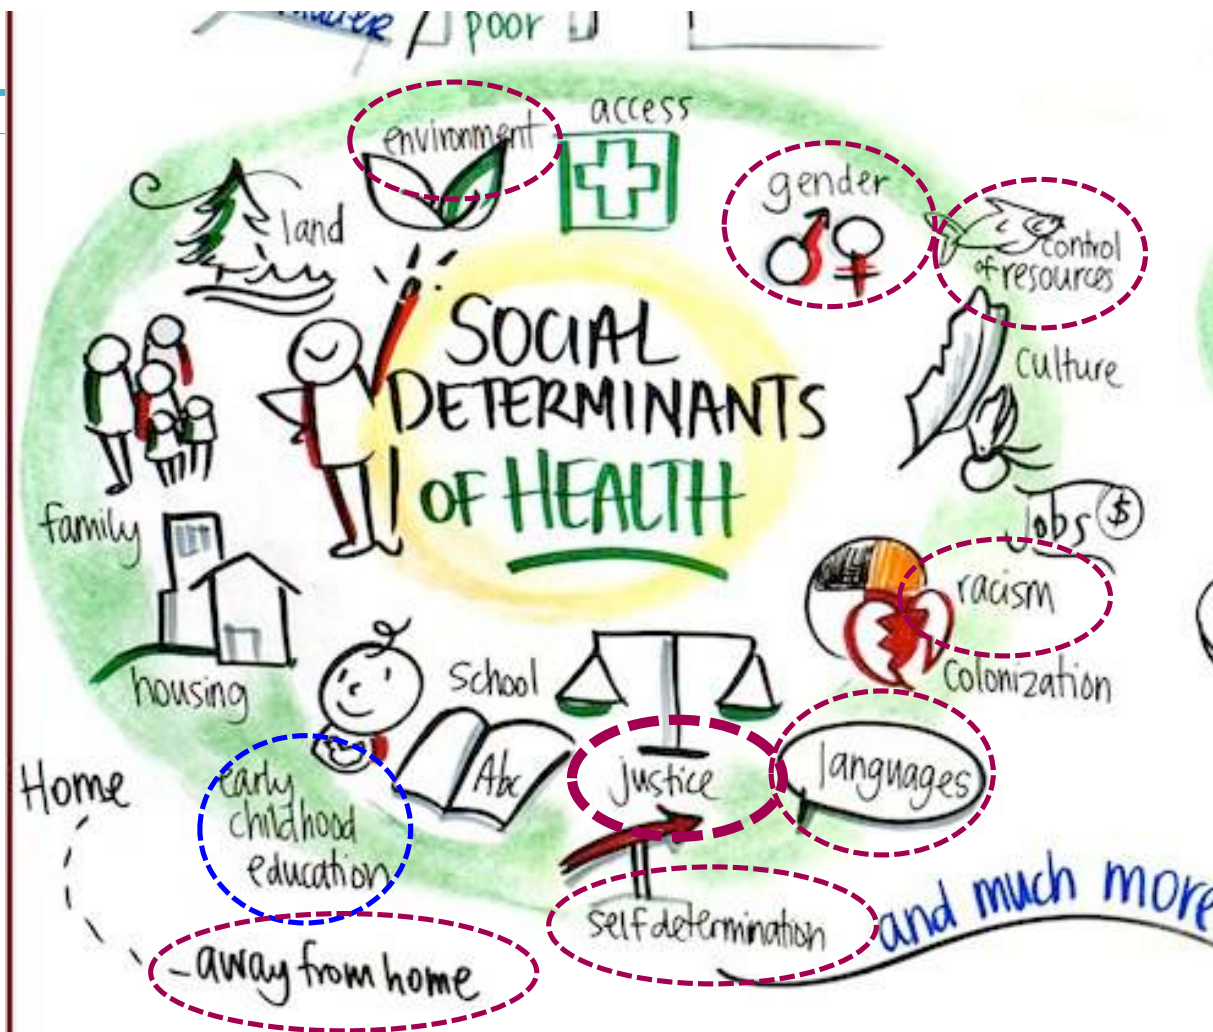 poor
access
environment
gender
land
control
of resources
SOCIAL
DETERMINANTS
OF HEALTH
culture
family
Jobs $
racism
colonization
housing
school
Abc
justice
languages
Home
early
childhood
education
self determination
and much more
away from home